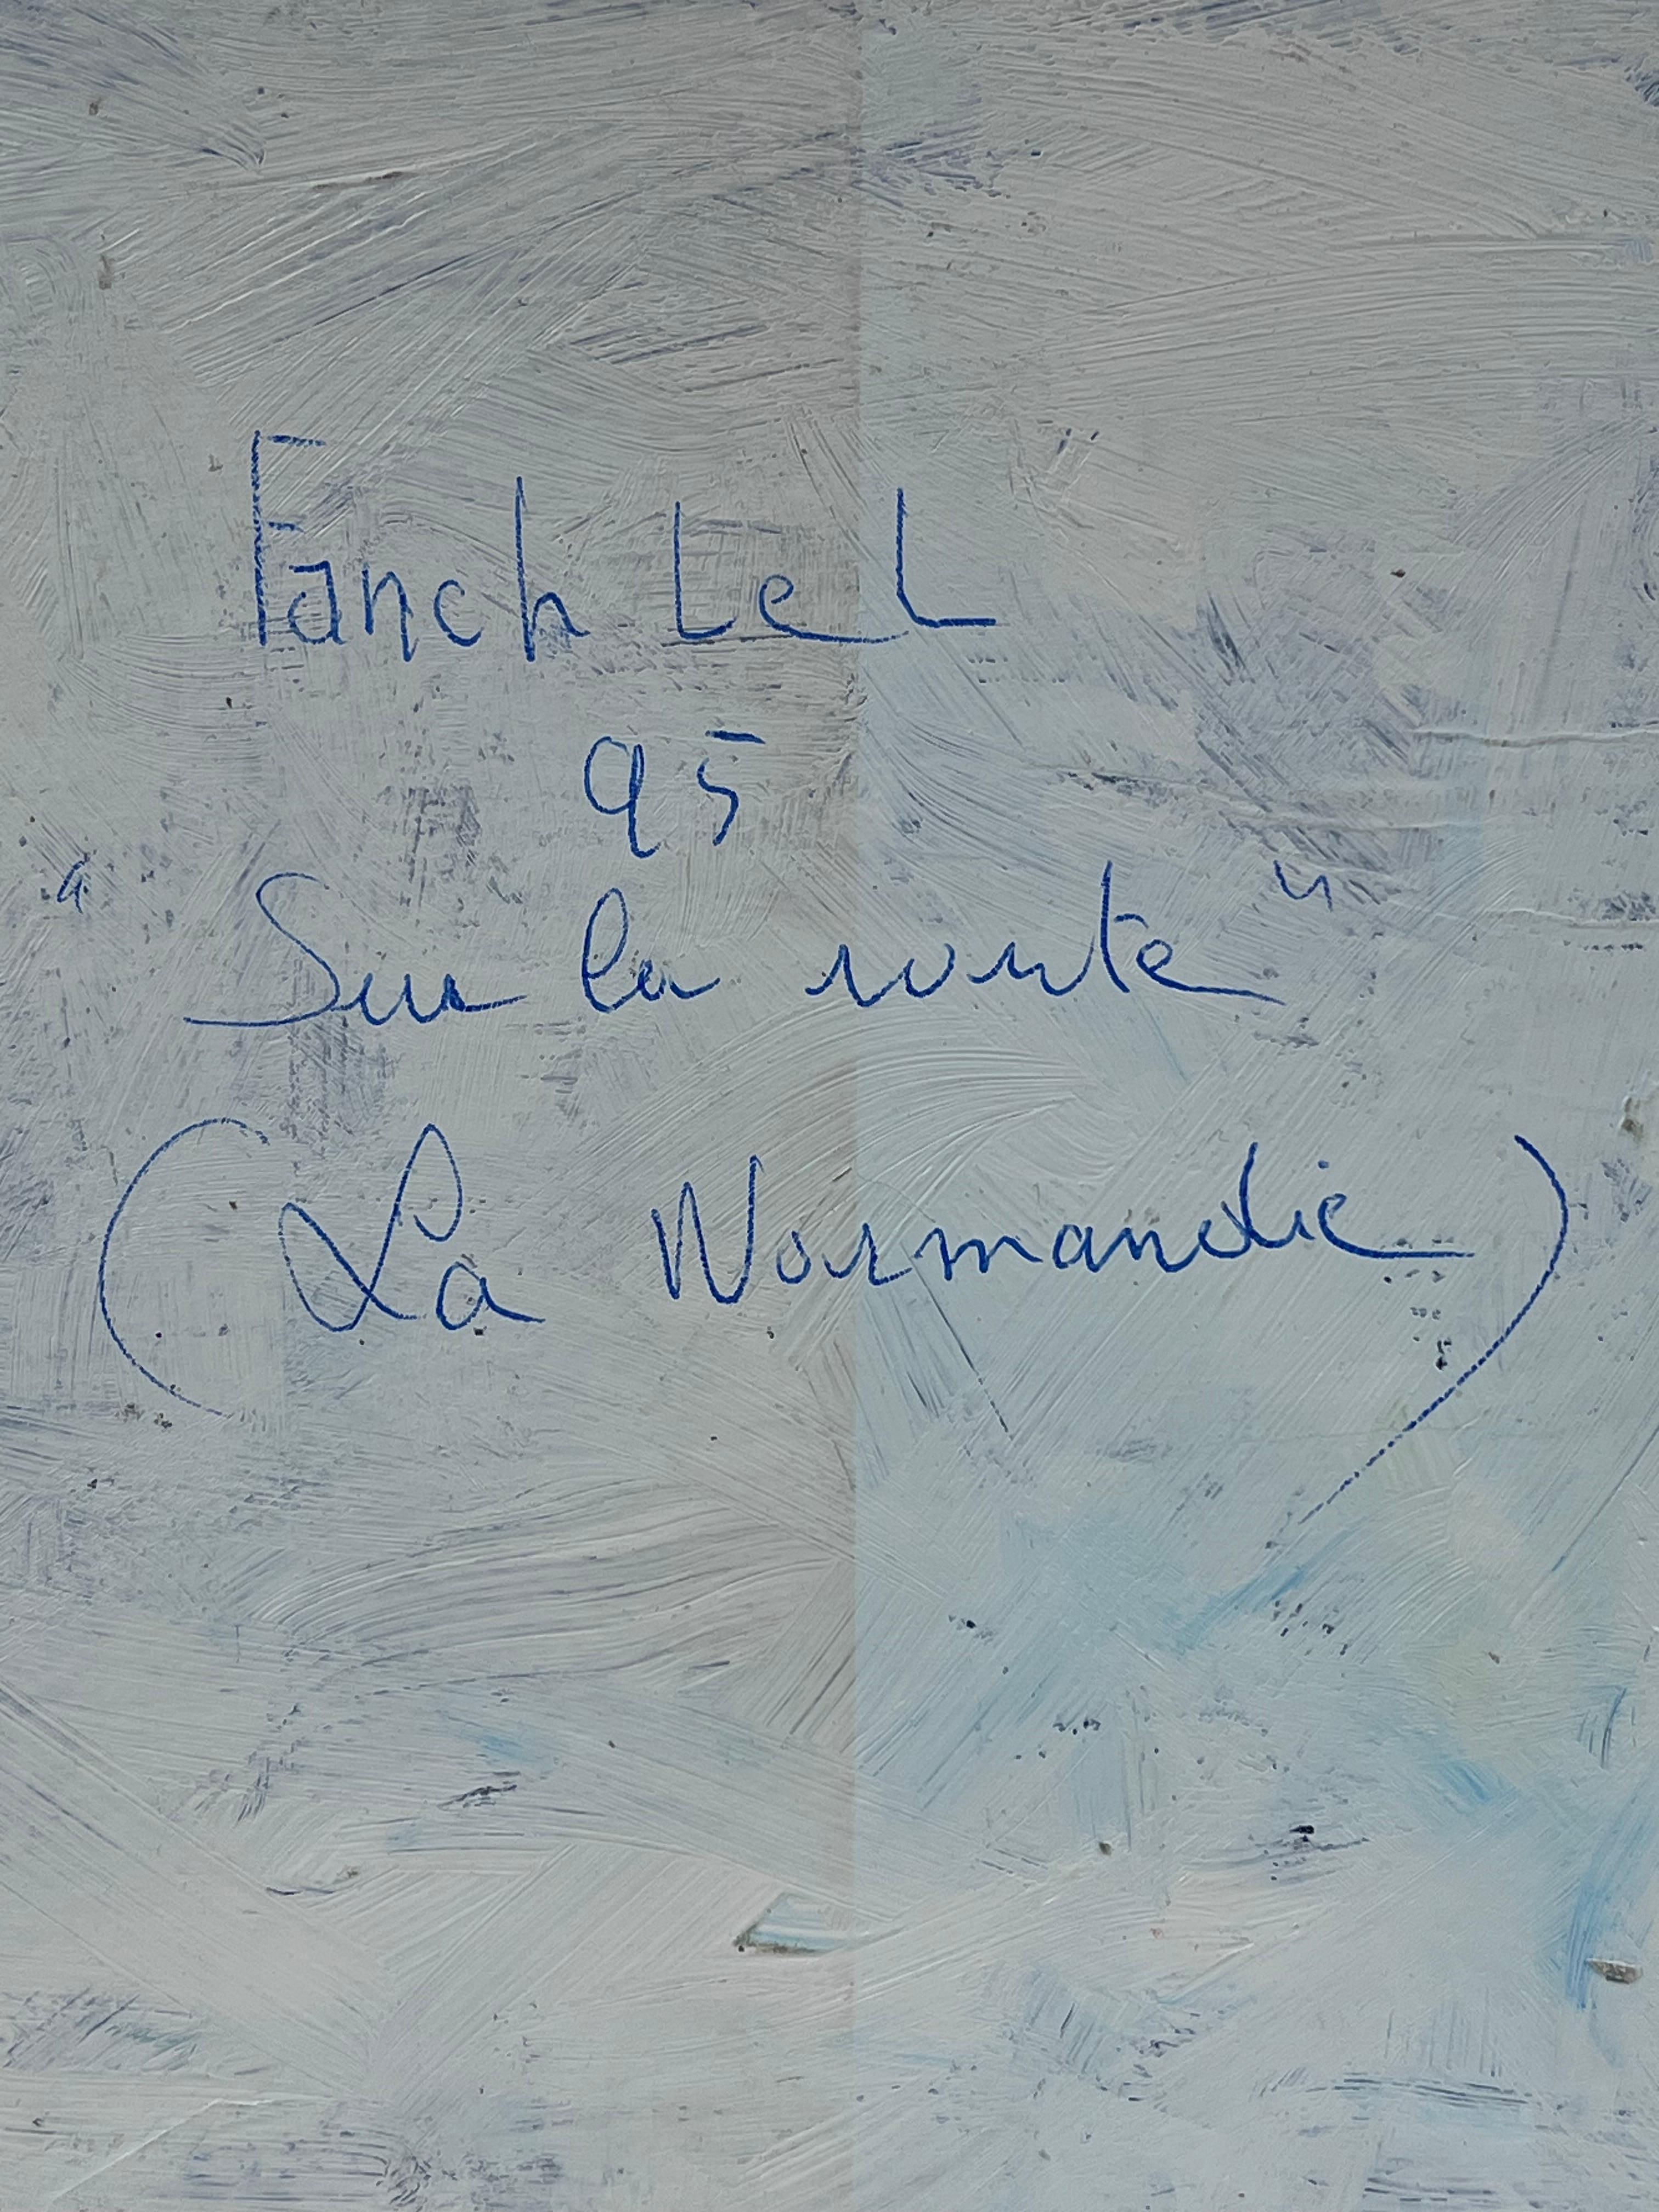 Fanch Le L
95
"Sur la route"
(La Normandie)